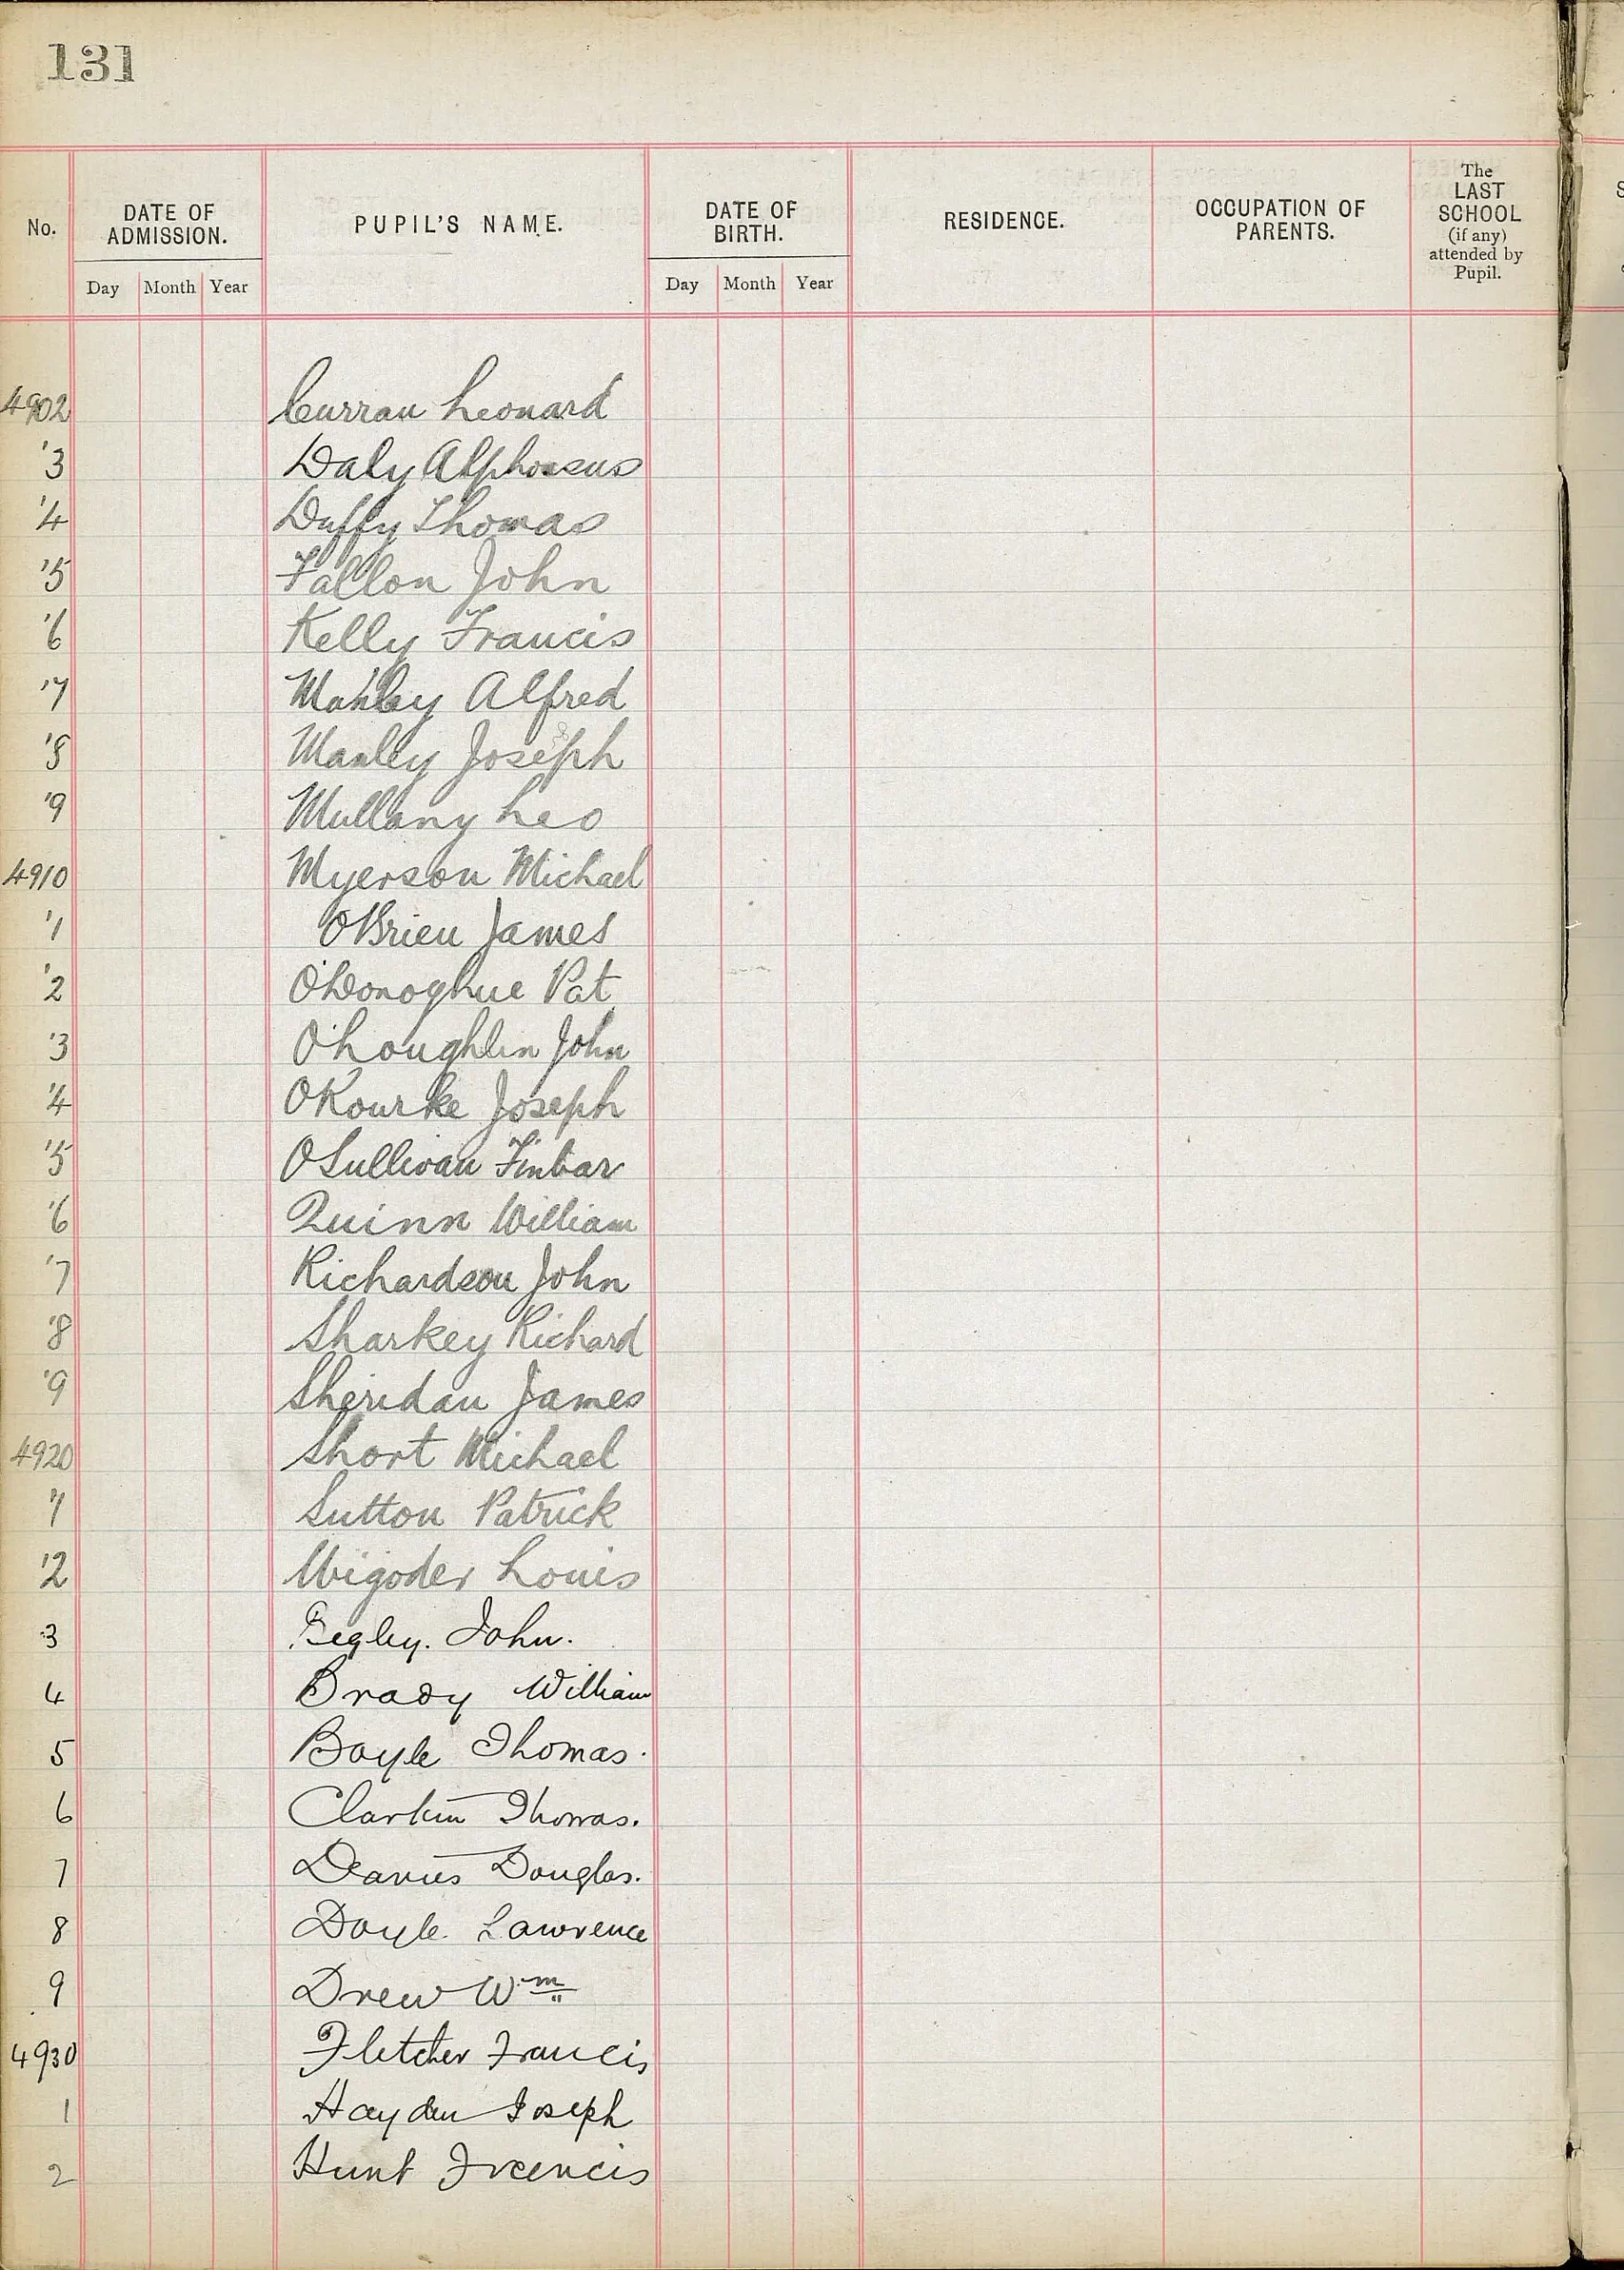 131
No.
DATE OF ADMISSION.
PUPIL'S NAME.
DATE OF BIRTH.
RESIDENCE.
OCCUPATION OF PARENTS.
The LAST SCHOOL (if any) attended by Pupil.
Day Month Year
Day Month Year
4902 Curran Leonard
'3 Daly Alphonsus
'4 Duffy Thomas
'5 Fallon John
'6 Kelly Francis
'7 Manley Alfred
'8 Manley Joseph
'9 Mullany Leo
4910 Myerson Michael
'1 O'Brien James
'2 O'Donoghue Pat
'3 O'Loughlin John
'4 O'Rourke Joseph
'5 O'Sullivan Finbar
'6 Quinn William
'7 Richardson John
'8 Sharkey Richard
'9 Sheridan James
4920 Short Michael
'1 Sutton Patrick
'2 Wigoder Louis
3 Begley. John.
4 Brady William
5 Boyle Thomas.
6 Clarkin Thomas.
7 Douglas.
8 Doyle Lawrence
9 Drew Wm
4930 Fletcher Francis
1 Hayden Joseph
2 Hunt Francis